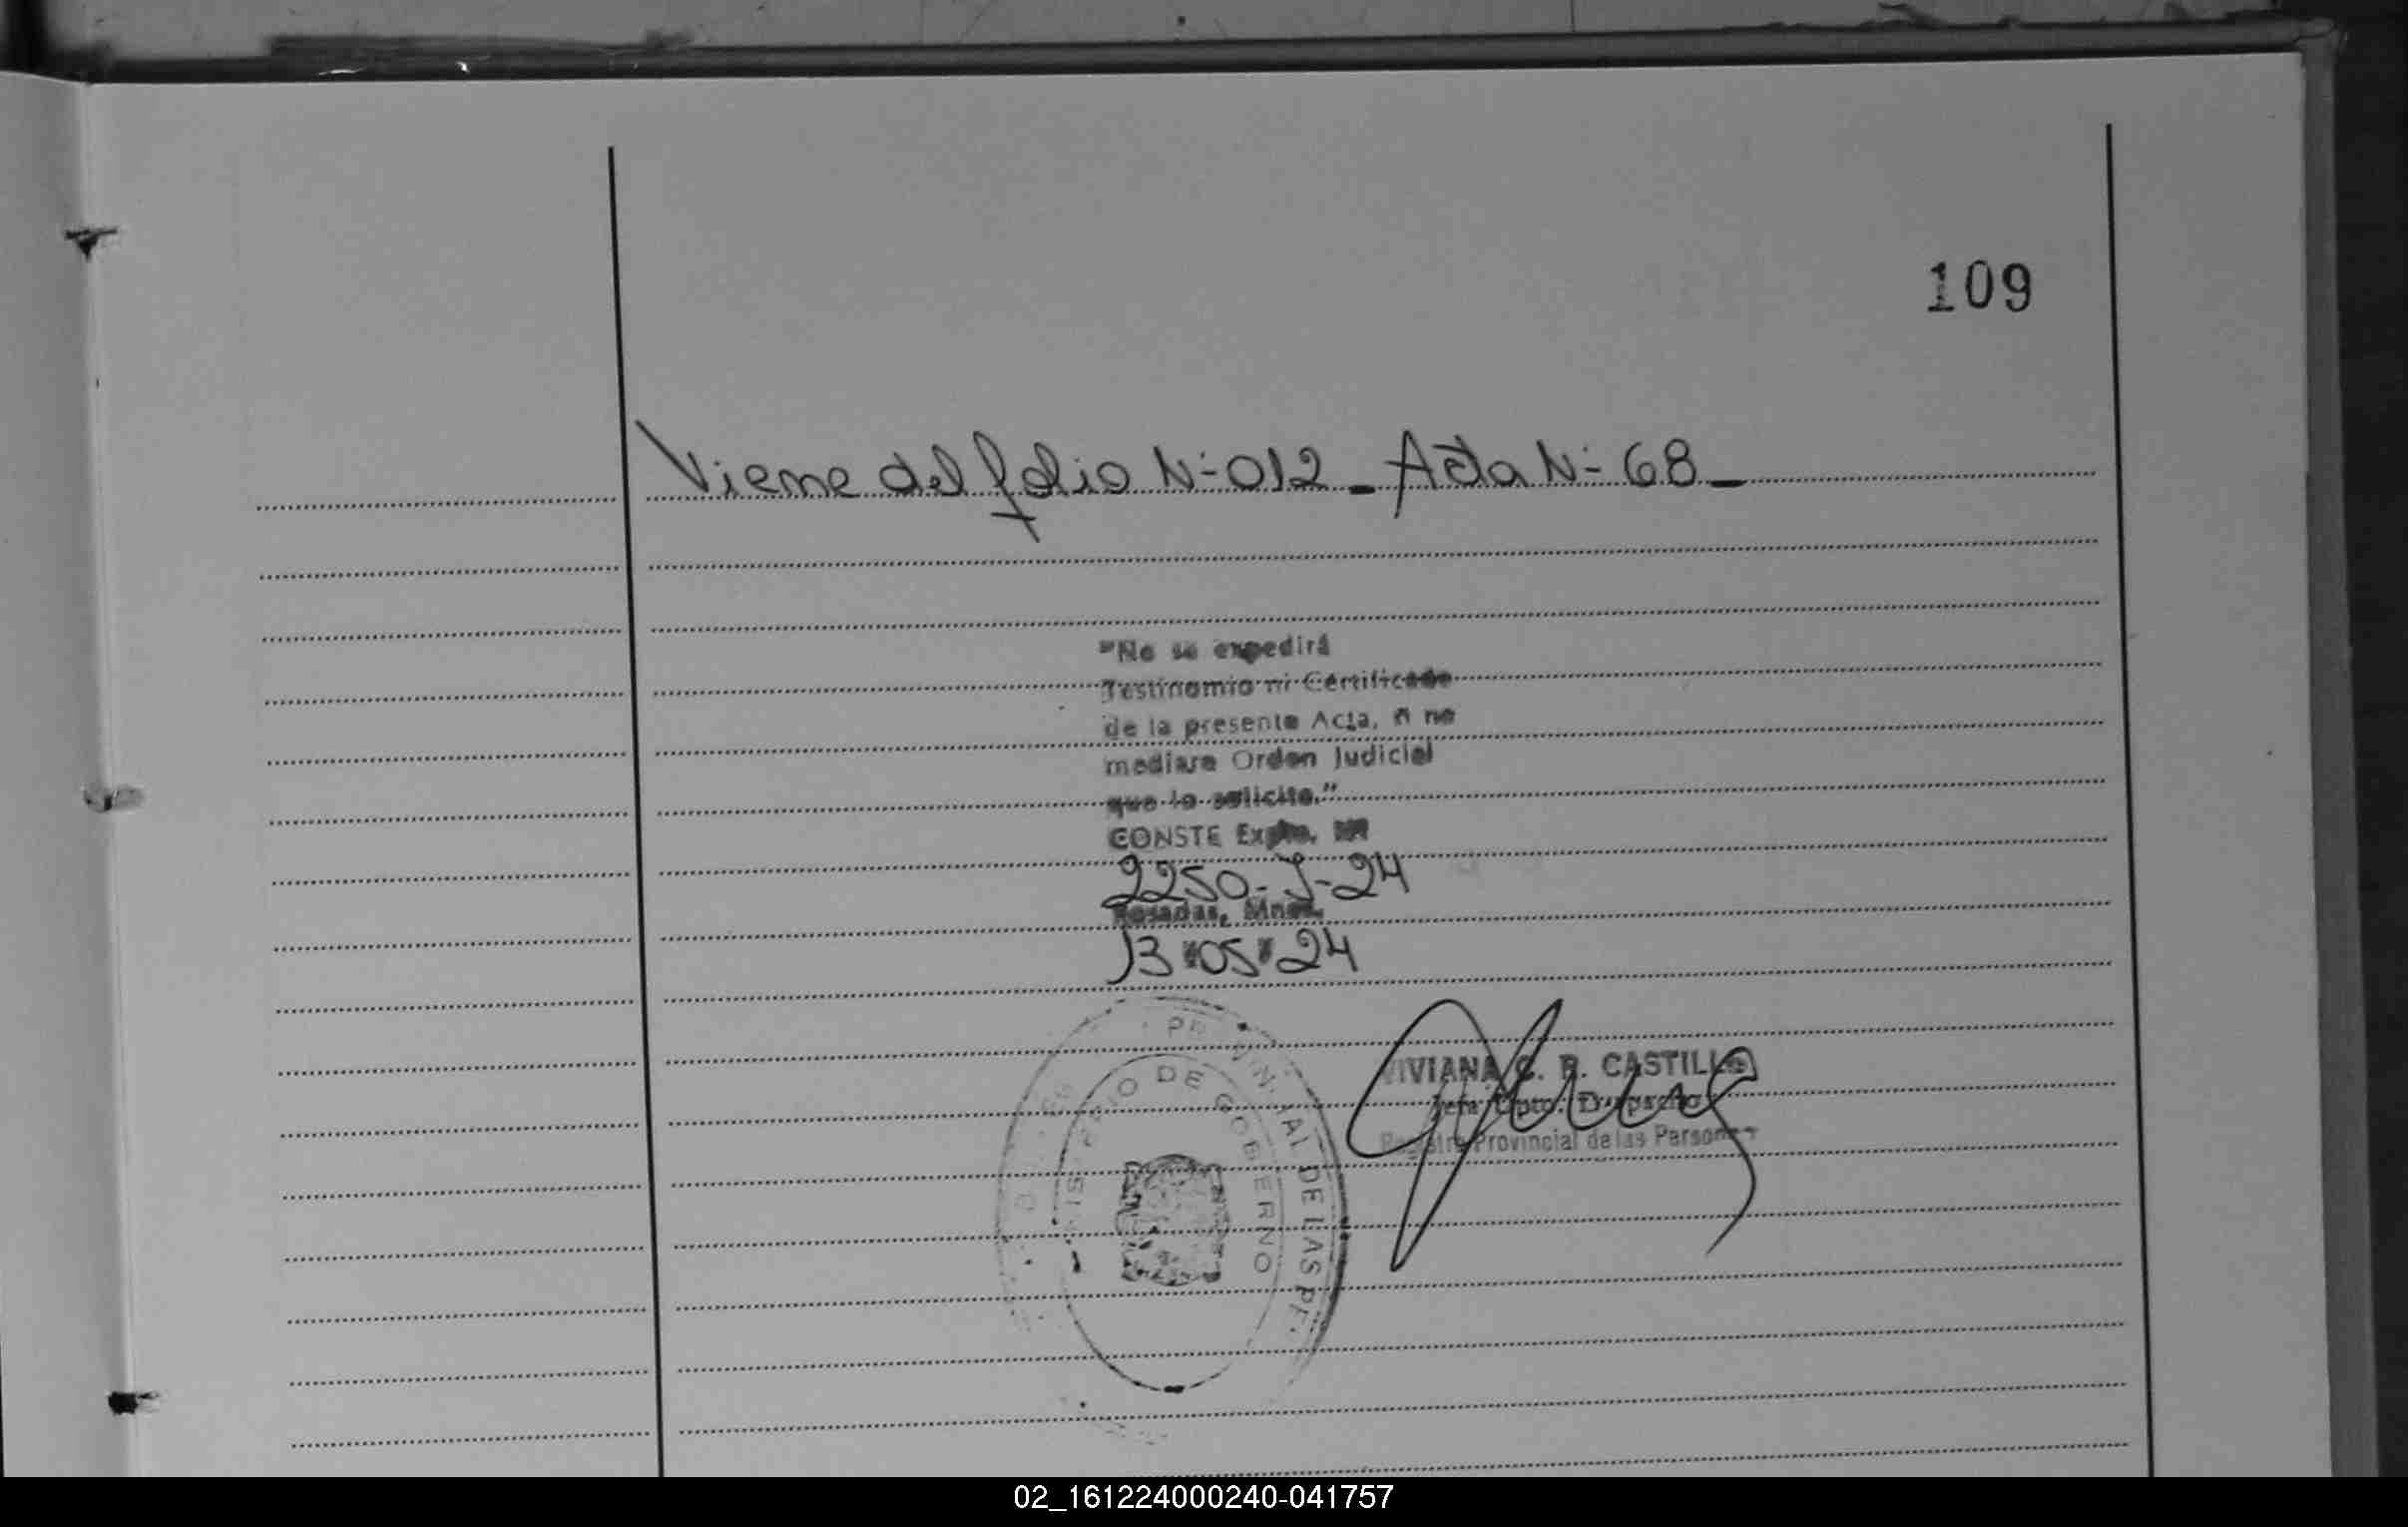 109
Viene del folio Nº 012 _ Acta Nº 68 _
"No se expedirá
Testimonio ni Certificado
de la presente Acta, si no
mediare Orden Judicial
que lo solicite."
CONSTE Expte. Nº
2250-J-24
Posadas, Mnes.
13 05 24
VIVIANA C. R. CASTILLO
Jefa Dpto. Despacho
Registro Provincial de las Personas
PROVINCIAL DE LAS PE
DE GOBERNO
02_161224000240-041757